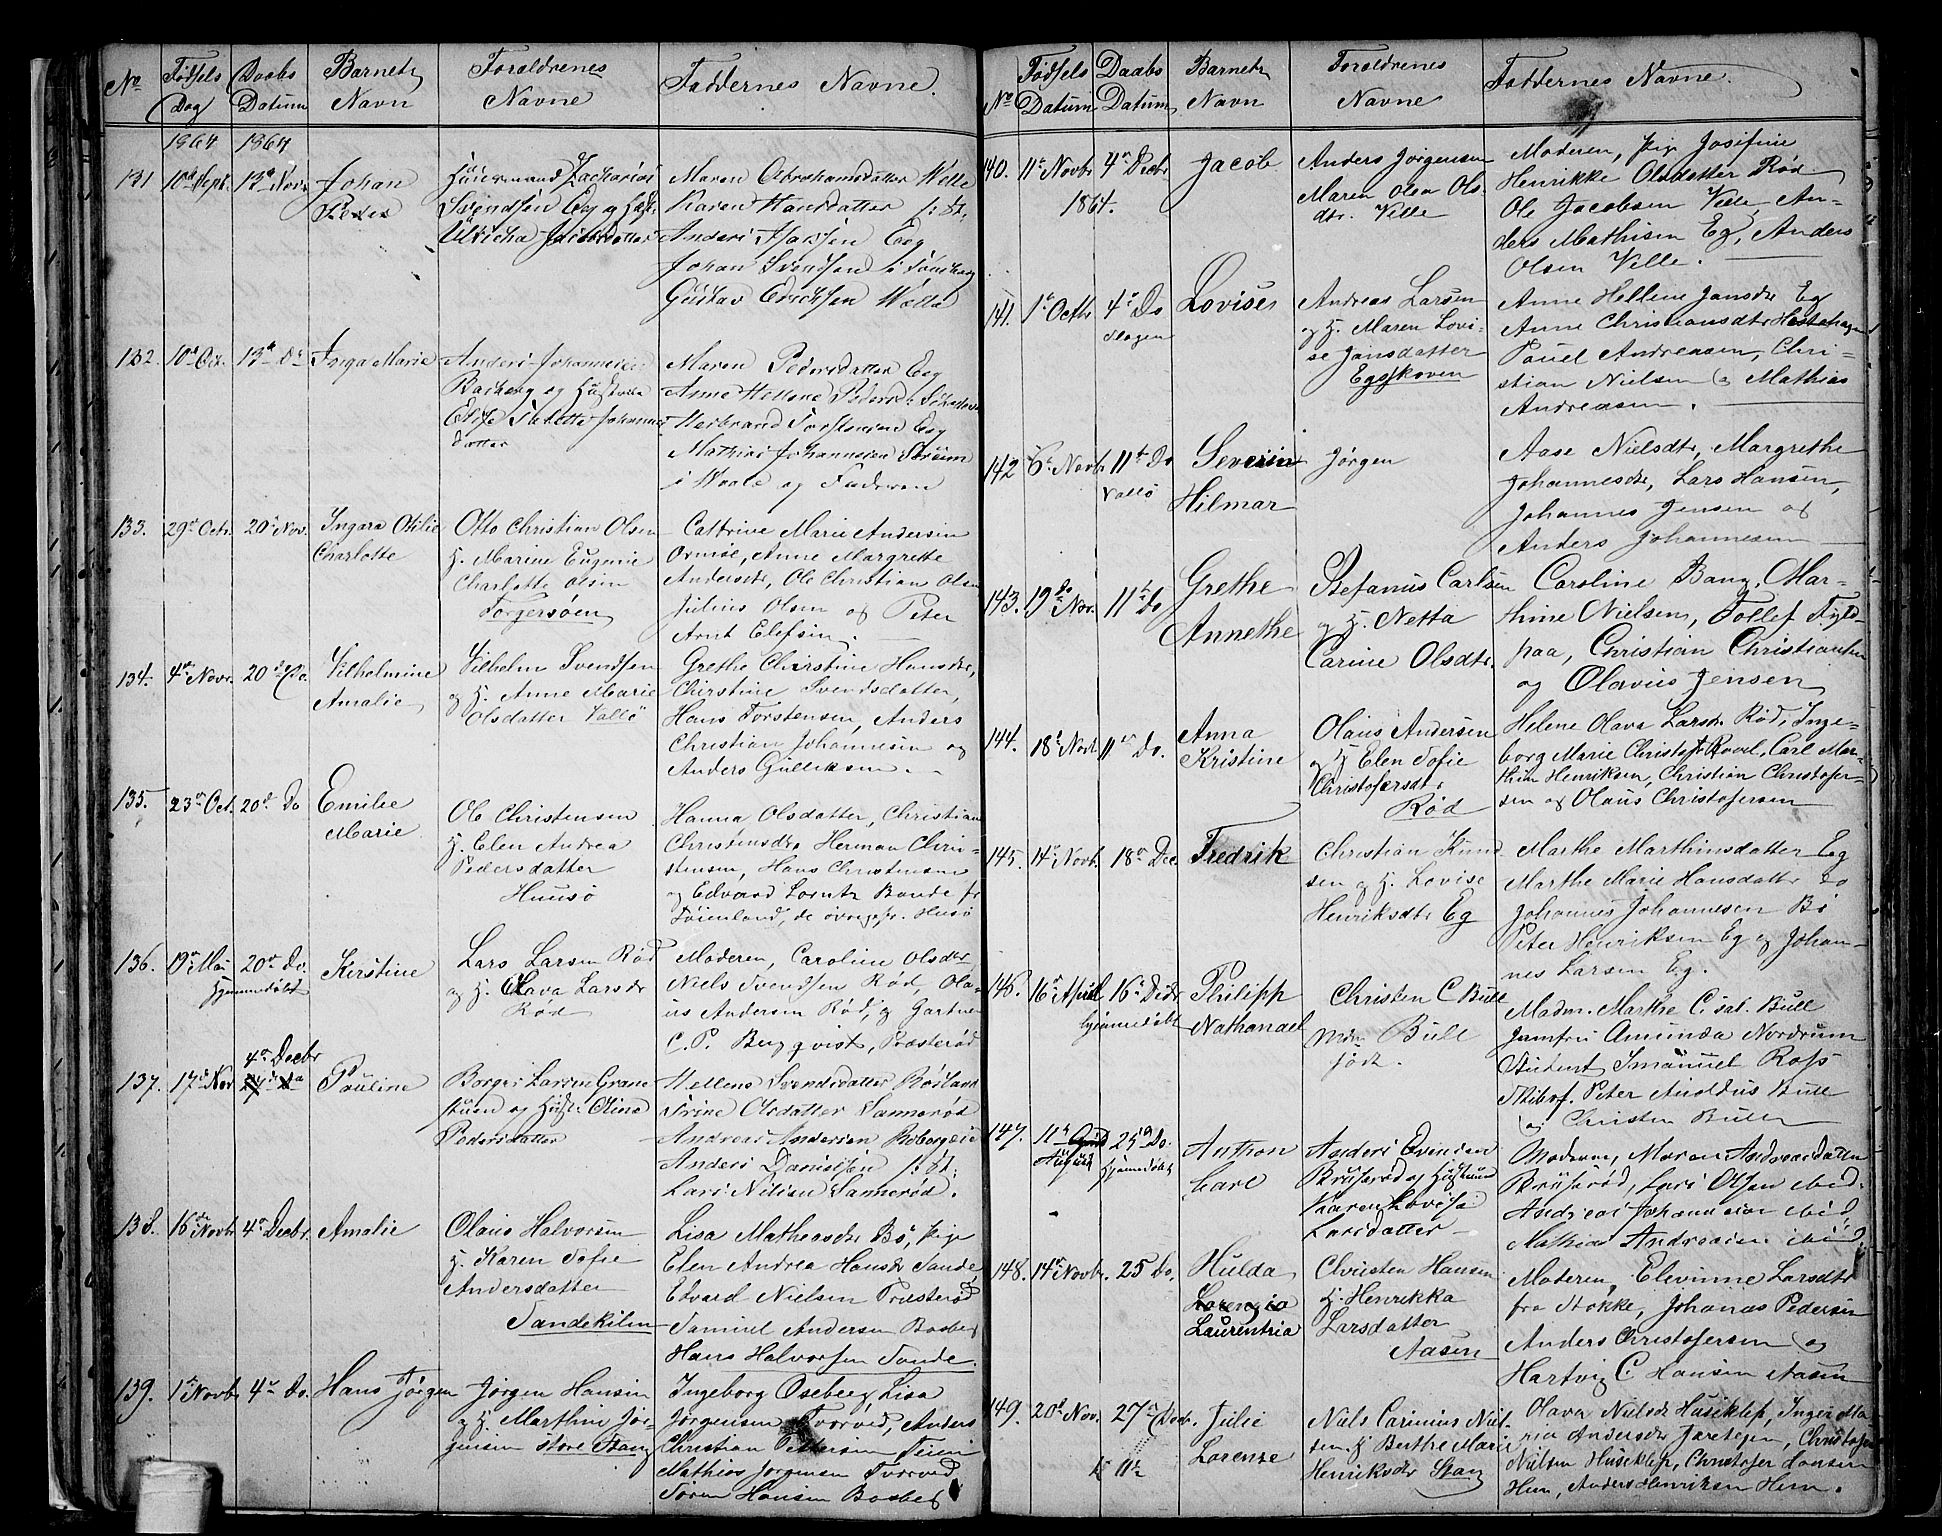 No
Fødsels
Dag
Daabs
Datum
Barnets
Navn
Forældrenes
Navne
Faddernes Navne.
1864 1864
131 10de Sept. 13de Novr
Johan
Peder
Huusmand Zacharias
Svendsen Eeg og Hst.
Ulricha Jacobsdatter
Maren Abrahamsdatter Welle
Karen Hansdatter
Anders Isaksen Eeg
Johan Svendsen i Tønsberg
Gustav Erichsen Welle
132. 10de Oct. 13de Do
Inga Marie
Anders Johannesen
Bacherg og Hustrue
Else Johannes
datter
Maren Pedersdatter Eeg
Anne Hellene Pedersd.
Herbrand Torstensen Eeg
Mathias Johannesen
i Waale og Faderen
133. 29de Octr. 20de Nov.
Ingara Otilie
Charlotte
Otto Christian Olsen
H. Marine Eugenie
Charlotte Olsen
Torgersøen
Cathrine Marie Andersen
Ormøe, Anne Margrethe
Andersdr, Ole Christian Olsen
Julius Olsen og Peter
Arnt Elefsen.
134. 4de Novr. 20de Do.
Vilhelmine
Amalie
Vilhelm Svendsen
og H. Anne Marie
Olsdatter Vallø
Grethe Christine Hansdr,
Christine Svendsdatter,
Hans Torstensen, Anders
Christian Johannesen og
Anders Gulliksen.
135. 23de Oct. 20de Do
Emilie
Marie
Ole Christensen
H. Elen Andrea
Pedersdatter
Husø
Hanna Olsdatter, Christian
Christensdr Herman Chri-
stensen, Hans Christensen
og Edvard Lorentz Bonde fr
Føienland, de øvrige fr. Husø
136. 19de Mai 20de Do.
hjemmedøbt
Kirstine
Lars Larsen Rød
og H. Olava Larsdr
Rød
Moderen, Caroline Olsdr
Niels Svendsen Rød, Ola-
us Andersen Rød, og Gartner
C. P. Bergqvist, Præsterød
137. 17de Nov 4de Decbr
Pauline
Borger Larsen Gran-
stuen og Hust. Oline
Pedersdatter
Hellene Svendsdatter
Trine Olsdatter Sannerød
Andreas Andersen
Anders Danielsen
Lars Nilsen Sannerød.
138. 16de Novbr 4de Decbr
Amalie
Olaus Halvorsen
H. Karen Sofie
Andersdatter
Sandekilen
Lisa Matheasdr Bø, pige
Elen Andrea Hansdr Sande,
Edvard Nielsen Præsterød
Samuel Andersen Basberg
Hans Halvorsen Sande.
139. 1de Novbr 4de Do.
Hans Jørgen
Jørgen Hansen
og H. Marthine Jør-
gensen store Stang
Ingeborg Oseberg, Lisa
Jørgensen Torved, Anders
Christian Pettersen Feien
Mathias Jørgensen Torved
Søren Hansen Basberg
No
Fødsels
Datum
Daabs
Datum
Barnets
Navn
Forældrenes
Navne
Faddernes Navne.
140. 11te Novbr 4de Decbr
1864.
Jacob
Anders Jørgensen
Maren Olea Ols-
dtr. Velle
Moderen, pige Josefine
Henrikke Olsdatter Rød
Ole Jacobsen Velle, An-
ders Mathisen Eg, Anders
Olsen Velle.
141. 1de Octbr 4de Do
Slagen
Lovise
Andreas Larsen
og H. Maren Lovi-
se Jansdatter
Egeskoven
Anne Hellene Jansdr Eg
Anne Christiansdtr Hestehagen
Pauel Andreasen, Chri-
stian Nielsen og Mathias
Andreasen.
142 6te Novbr 11te Do
Vallø
Severin
Hilmar
Jørgen
Aase Nielsdtr, Margrethe
Johannesdr, Lars Hansen,
Johannes Jensen og
Anders Johannesen
143. 19de Nov. 11te Do
Grethe
Annethe
Stefanus Carlsen
og H. Netta
Carine Olsdtr.
Caroline Bang, Mar-
thine Nielsen, Tollef Fyld-
paa, Christian Christiansen
og Olavus Jensen
144. 18de Novbr. 11te Do.
Anna
Kristine
Olaus Andersen
og H. Elen Sofie
Christofersdtr
Rød
Helene Olava Larsdr Rød, Inge-
borg Marie Christofr Rovel, Carl Mar-
thin Henriksen, Christian Christofer-
sen og Olaus Christofersen
145. 14de Novb. 18de Dec.
Fredrik
Christian Knud
sen og H. Lovise
Henriksdtr Eg
Marthe Marthinsdatter Eg
Marthe Marie Hansdatter Do
Johannes Johannesen Bø
Peter Henriksen Eg og Johan-
nes Larsen Eg.
146. 16de April 16de Decbr
hjemmedøbt
Philipp
Nathanael
Christen C Bull
Mdm Bull
født
Madm. Marthe C. sal. Bull
Jomfru Amunda Nordrum
Student Imanuel Ross
Skibsf. Peter Anoldus Bull
og Christen Bull
147. 11te August 25de Do.
hjemmedøbt
Anthon
Carl
Anders Evensen
Brusrød og Hustrue
Karen Lovise
Larsdatter
Moderen, Maren Andreasdatter
Brusrød, Lars Olsen ibid.
Andreas Johannesen ibid
Mathias Andreasen ibid.
148. 14de Novbr. 25 Do.
Hulda
Lorenzia
Laurentzia
Christen Hansen
H. Henrikka
Larsdatter
Aasen
Moderen, Elevinne Larsdtr
fra Stokke, Johanas Pedersen
Anders Christofersen og
Hartvig C Hansen Aasen
149. 20de Nov. 27de Decb.
Julie
Lorense
Niels Carinius Niel-
sen, H. Berthe Marie
Henriksdr Stang
Olava Nielsdr Huseklep, Inger Ma-
ria Andersdr Jaretegen, Christofer
Nielsen Huseklep, Christofer Hansen
Hem, Anders Henriksen Hem.